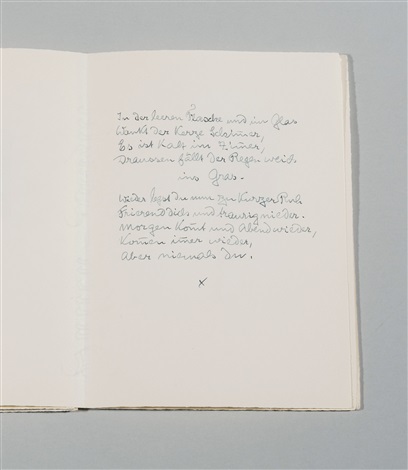 In der leeren Flasche und im Glas
Wankt der Kerze Schimer,
Es ist kalt im Zimer,
Draussen fällt der Regen weich
ins Gras.
Wieder legst du nun zu kurzer Ruh
Frierend dich und traurig nieder.
Morgen kom̄t und Abend wieder,
Kom̄en im̄er wieder,
Aber niemals du.
x